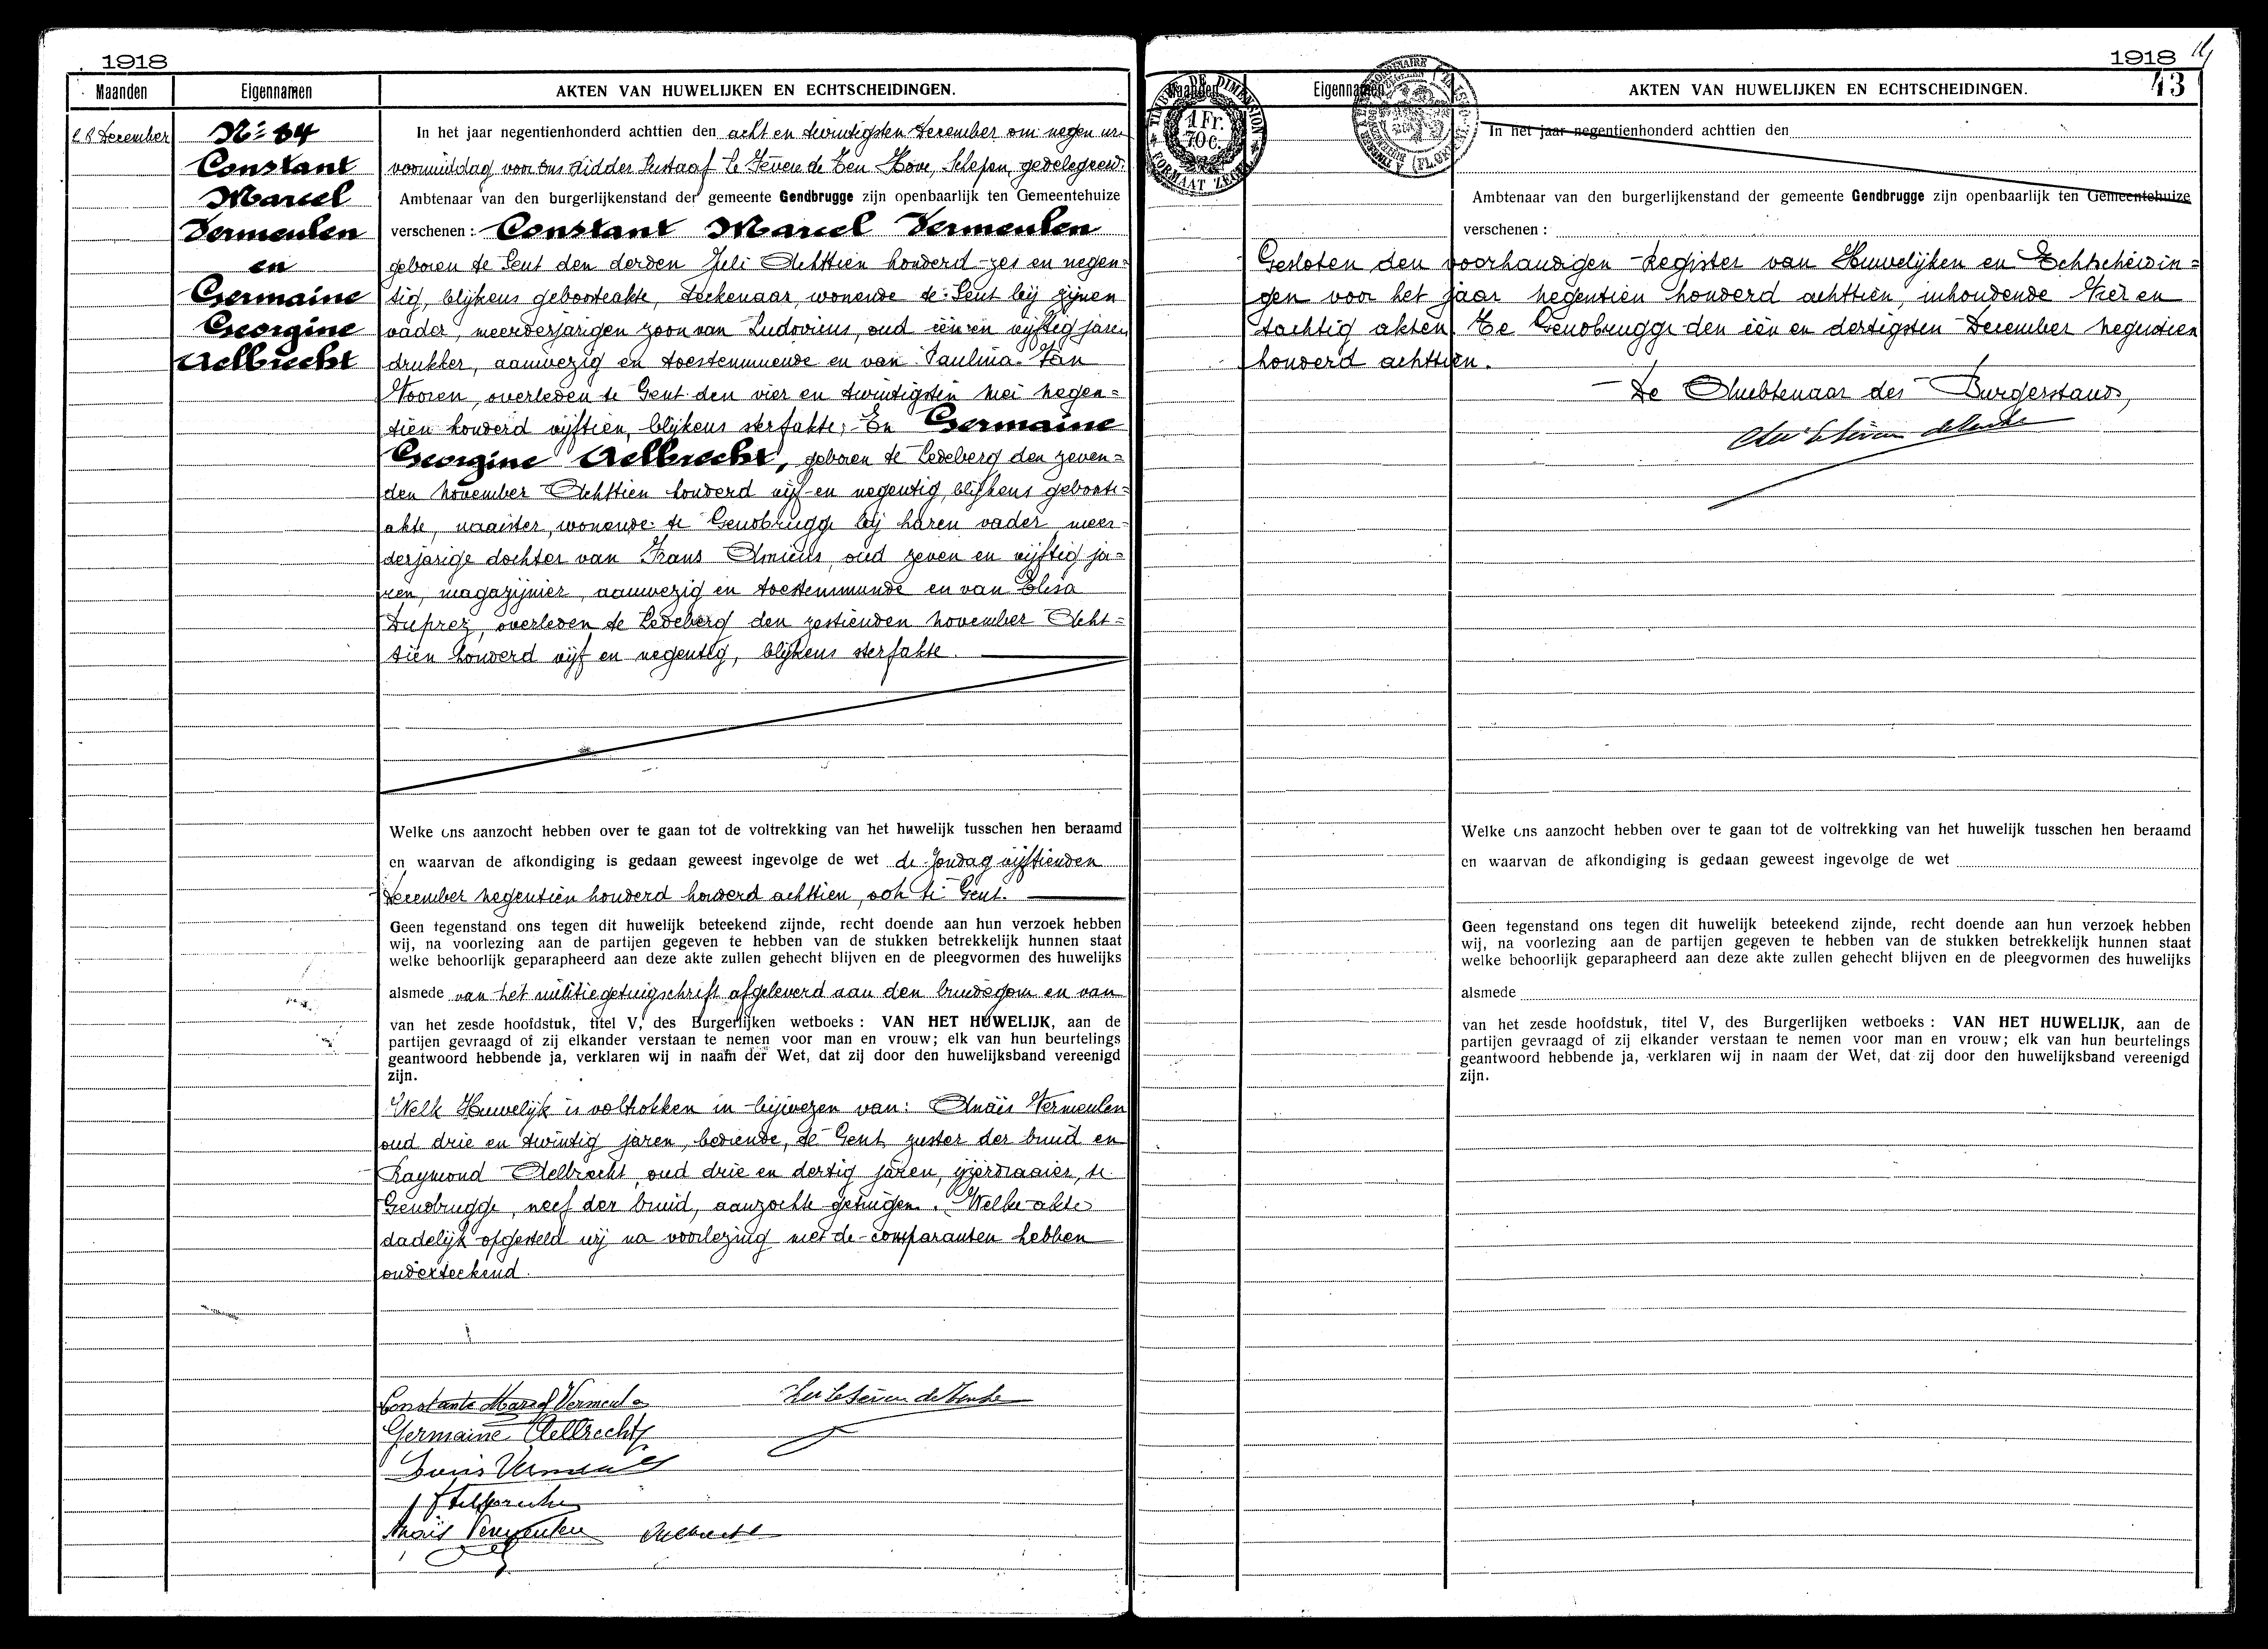 1918
Maanden Eigennamen AKTEN VAN HUWELIJKEN EN ECHTSCHEIDINGEN.
28 December
Nr 84
Constant
Marcel
Vermeulen
en
Germaine
Georgine
Aelbrecht
In het jaar negentienhonderd achttien den acht en twintigsten December om negen ure
voormiddag voor Ons Ridder Gustaaf Le Sèvere de Ten Hove, Schepen, gedelegeerd
Ambtenaar van den burgerlijkenstand der gemeente Gendbrugge zijn openbaarlijk ten Gemeentehuize
verschenen : Constant Marcel Vermeulen
geboren te Gent den derden Juli Achttien honderd zes en negen=
tig, blijkens geboorteakte, teekenaar, wonende te Gent bij zijnen
vader, meerderjarigen zoon van Ludovicus, oud één en vijftig jaren
drukker, aanwezig en toestemmende en van Paulina Van
Vooren, overleden te Gent den vier en twintigsten mei negen=
tien honderd vijftien, blijkens sterfakte; En Germaine
Georgine Aelbrecht, geboren te Ledeberg den zeven=
den November Achttien honderd vijf en negentig, blijkens geboorte=
akte, naaister, wonende te Gendbrugge bij haren vader meer=
derjarige dochter van Frans Amicus, oud zeven en vijftig ja=
ren, magazijnier, aanwezig en toestemmende en van Elisa
Duprez, overleden te Ledeberg den zestienden november Acht=
tien honderd vijf en negentig, blijkens sterfakte.
Welke ons aanzocht hebben over te gaan tot de voltrekking van het huwelijk tusschen hen beraamd
en waarvan de afkondiging is gedaan geweest ingevolge de wet de Zondag vijftienden
December negentien honderd honderd achttien, ook te Gent.
Geen tegenstand ons tegen dit huwelijk beteekend zijnde, recht doende aan hun verzoek hebben
wij, na voorlezing aan de partijen gegeven te hebben van de stukken betrekkelijk hunnen staat
welke behoorlijk geparapheerd aan deze akte zullen gehecht blijven en de pleegvormen des huwelijks
alsmede van het militiegetuigschrift afgeleverd aan den bruidegom en van
van het zesde hoofdstuk, titel V, des Burgerlijken wetboeks : VAN HET HUWELIJK, aan de
partijen gevraagd of zij elkander verstaan te nemen voor man en vrouw; elk van hun beurtelings
geantwoord hebbende ja, verklaren wij in naam der Wet, dat zij door den huwelijksband vereenigd
zijn.
Welk Huwelijk is voltrokken in bijwezen van: Anaïs Vermeulen
oud drie en twintig jaren, bediende, te Gent, zuster der bruid en
Raymond Aelbrecht, oud drie en dertig jaren, ijzerdraaier, te
Gendbrugge, neef der bruid, aanzochte getuigen. Welke akte
dadelijk opgesteld wij na voorlezing met de comparanten hebben
onderteekend.
Constant Marcel Vermeulen
Germaine Aelbrecht
Louis Vermeulen
Anaïs Vermeulen Aelbrecht
1918
43
TIMBRE DE DIMENSION
1 Fr.
70 c.
FORMAAT ZEGEL
Eigennamen AKTEN VAN HUWELIJKEN EN ECHTSCHEIDINGEN.
In het jaar negentienhonderd achttien den
Ambtenaar van den burgerlijkenstand der gemeente Gendbrugge zijn openbaarlijk ten Gemeentehuize
verschenen :
Gesloten den voorhandigen Register van Huwelijken en Echtscheidin=
gen voor het jaar negentien honderd achttien, inhoudende vier en
tachtig akten. Te Gendbrugge den één en dertigsten December negentien
honderd achttien.
De Ambtenaar des Burgerstands,
Welke ons aanzocht hebben over te gaan tot de voltrekking van het huwelijk tusschen hen beraamd
en waarvan de afkondiging is gedaan geweest ingevolge de wet
Geen tegenstand ons tegen dit huwelijk beteekend zijnde, recht doende aan hun verzoek hebben
wij, na voorlezing aan de partijen gegeven te hebben van de stukken betrekkelijk hunnen staat
welke behoorlijk geparapheerd aan deze akte zullen gehecht blijven en de pleegvormen des huwelijks
alsmede
van het zesde hoofdstuk, titel V, des Burgerlijken wetboeks : VAN HET HUWELIJK, aan de
partijen gevraagd of zij elkander verstaan te nemen voor man en vrouw; elk van hun beurtelings
geantwoord hebbende ja, verklaren wij in naam der Wet, dat zij door den huwelijksband vereenigd
zijn.